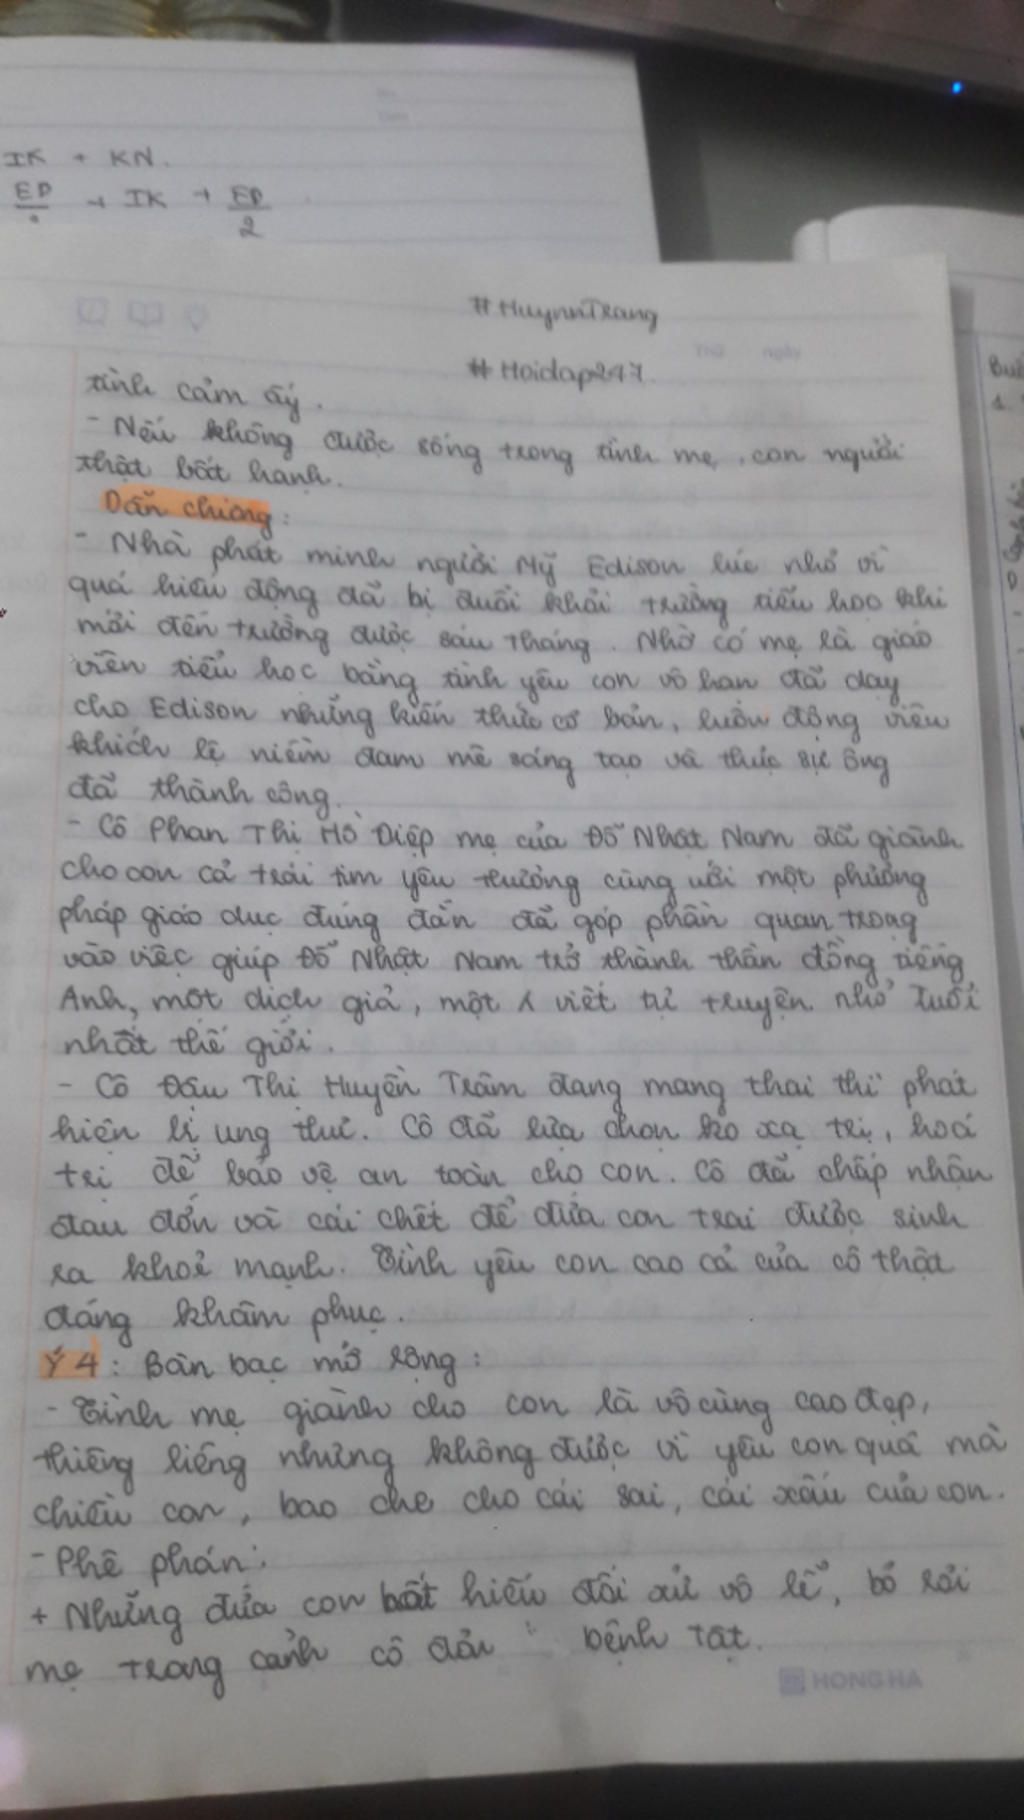 IK + KN.
EP + IK + EP
2
#HuynnTrang
#Hoidap247.
Thứ ngày
tình cảm ấy.
- Nếu không được sống trong tình mẹ, con người
thật bất hạnh.
Dẫn chứng:
- Nhà phát minh người Mỹ Edison lúc nhỏ vì
quá hiếu động đã bị đuổi khỏi trường tiểu học khi
mới đến trường được sáu tháng. Nhờ có mẹ là giáo
viên tiểu học bằng tình yêu con vô hạn đã dạy
cho Edison những kiến thức cơ bản, luôn động viên
khích lệ niềm đam mê sáng tạo và thực sự ông
đã thành công.
- Cô Phan Thị Hồ Điệp mẹ của Đỗ Nhật Nam đã giành
cho con cả trái tim yêu thương cùng với một phương
pháp giáo dục đúng đắn đã góp phần quan trọng
vào việc giúp Đỗ Nhật Nam trở thành thần đồng tiếng
Anh, một dịch giả, một viết tự truyện nhỏ tuổi
nhất thế giới.
- Cô Đậu Thị Huyền Trâm đang mang thai thì phát
hiện bị ung thư. Cô đã lựa chọn ko xạ trị, hoá
trị để bảo vệ an toàn cho con. Cô đã chấp nhận
đau đớn và cái chết để đứa con trai được sinh
ra khoẻ mạnh. Tình yêu con cao cả của cô thật
đáng khâm phục.
Ý 4: Bàn bạc mở rộng:
- Tình mẹ giành cho con là vô cùng cao đẹp,
thiêng liêng nhưng không được vì yêu con quá mà
chiều con, bao che cho cái sai, cái xấu của con.
- Phê phán:
+ Những đứa con bất hiếu đối xử vô lễ, bỏ rơi
mẹ trong cảnh cô đơn bệnh tật.
HONG HA